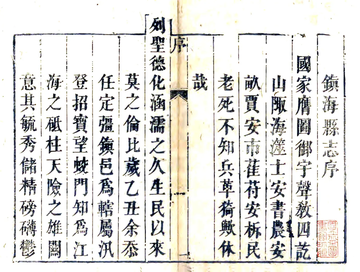 鎮海縣志序
國家膺圖御宇聲教四訖
山陬海澨士安書農安
畝賈安市萑苻安柝民
老死不知兵革猗歟休
哉
序
一
列聖德化涵濡之久生民以來
莫之倫比歲乙丑余忝
任定疆鎮邑爲轄屬汎
登招寶望蛟門知爲江
海之砥柱天險之雄關
意其毓秀儲精磅礴鬱